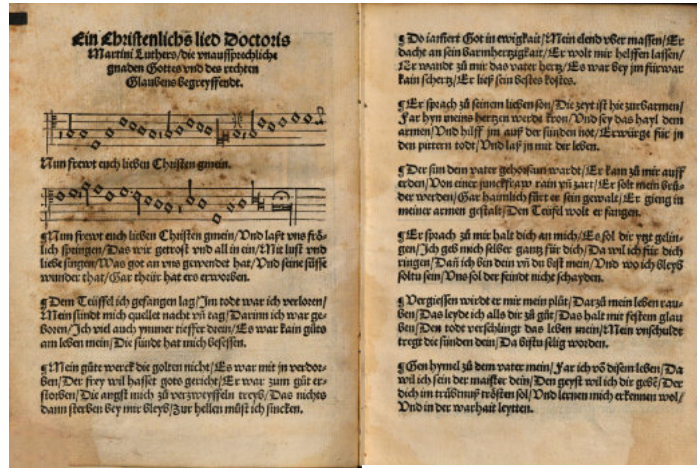 Ein Christenlichs lied Doctoris
Martini Luthers/die vnaussprechliche
gnaden Gottes vnd des rechten
Glaubens begreyffendt.
Nun frewt euch lieben Christen gmein.
¶ Nun frewt euch lieben Christen gmein/Vnd laßt vns frö-
lich springen/Das wir getrost vnd all in ein/Mit lust vnd
liebe singen/Was got an vns gewendet hat/Vnd seine süsse
wunder that/Gar theür hat ers erworben.
¶ Dem Teüffel ich gefangen lag/Im todt war ich verloren/
Mein sündt mich quellet nacht vñ tag/Darinn ich war ge-
boren/Ich viel auch ymmer tieffer drein/Es war kain güts
am leben mein/Die sündt hat mich besessen.
¶ Mein güte werck die golten nicht/Es war mit jn verdor-
ben/Der frey wil hasset gots gericht/Er war zum güt er-
storben/Die angst mich zü verzweyffeln treyb/Das nichts
dann sterben bey mir bleyb/Zur hellen müst ich sincken.
¶ Do iarhert Got in ewigkait/Mein elend vber massen/Er
dacht an sein barmhertzigkait/Er wolt mir helffen lassen/
Er wandt zü mir das vater hertz/Es war bey jm fürwar
kain schertz/Er ließ sein bestes kostes.
¶ Er sprach zü seinem lieben son/Die zeyt ist hie zurbarmen/
Far hyn meins hertzen werde kron/Vnd sey das hayl dem
armen/Vnd hilff jm auß der sünden not/Erwürge für jn
den pittern todt/Vnd laß jn mit dir leben.
¶ Der sun dem vater gehorsam wardt/Er kam zü mir auff
erden/Von einer junckfraw rain vñ zart/Er solt mein brü-
der werden/Gar haimlich fürt er sein gewalt/Er gieng in
meiner armen gestalt/Den Teüfel wolt er fangen.
¶ Er sprach zü mir halt dich an mich/Es sol dir ytzt gelin-
gen/Ich geb mich selber gantz für dich/Da wil ich für dich
ringen/Dañ ich bin dein vñ du bist mein/Vnd wo ich bleyb
soltu sein/Vns sol der feindt nicht schayden.
¶ Vergiessen wirdt er mir mein plüt/Dar zü mein leben rau-
ben/Das leyde ich alls dir zü güt/Das halt mit festem glau
ben/Den todt verschlingt das leben mein/Mein vnschuldt
tregt die sünden dein/Da bistu selig worden.
¶ Gen hymel zü dem vater mein/Far ich võ disem leben/Da
wil ich sein der maister dein/Den geyst wil ich dir gebẽ/Der
dich im trübtnuß trösten sol/Vnd lernen mich erkennen wol/
Vnd in der warhait leytten.